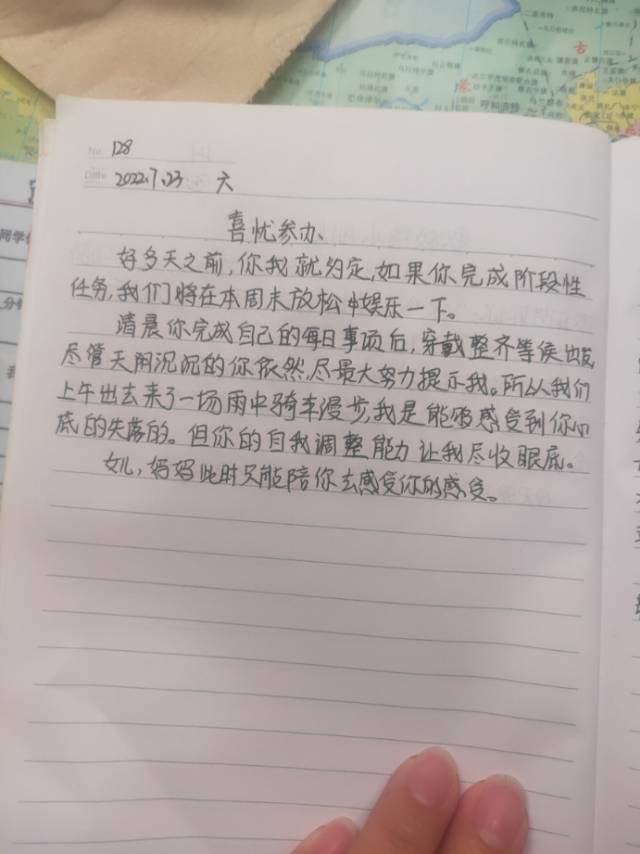 No. 128
Date 2022.7.23 六
喜忧参办、
好多天之前,你我就约定,如果你完成阶段性
任务,我们将在本周末放松中娱乐一下。
清晨你完成自己的每日事项后,穿戴整齐等候出发
尽管天阴沉沉的你依然,尽最大努力提示我。所以我们
上午出去来了一场雨中骑车漫步,我是能够感受到你心
底的失落的。但你的自我调整能力让我尽收眼底。
女儿,妈妈此时只能陪你去感受你的感受。